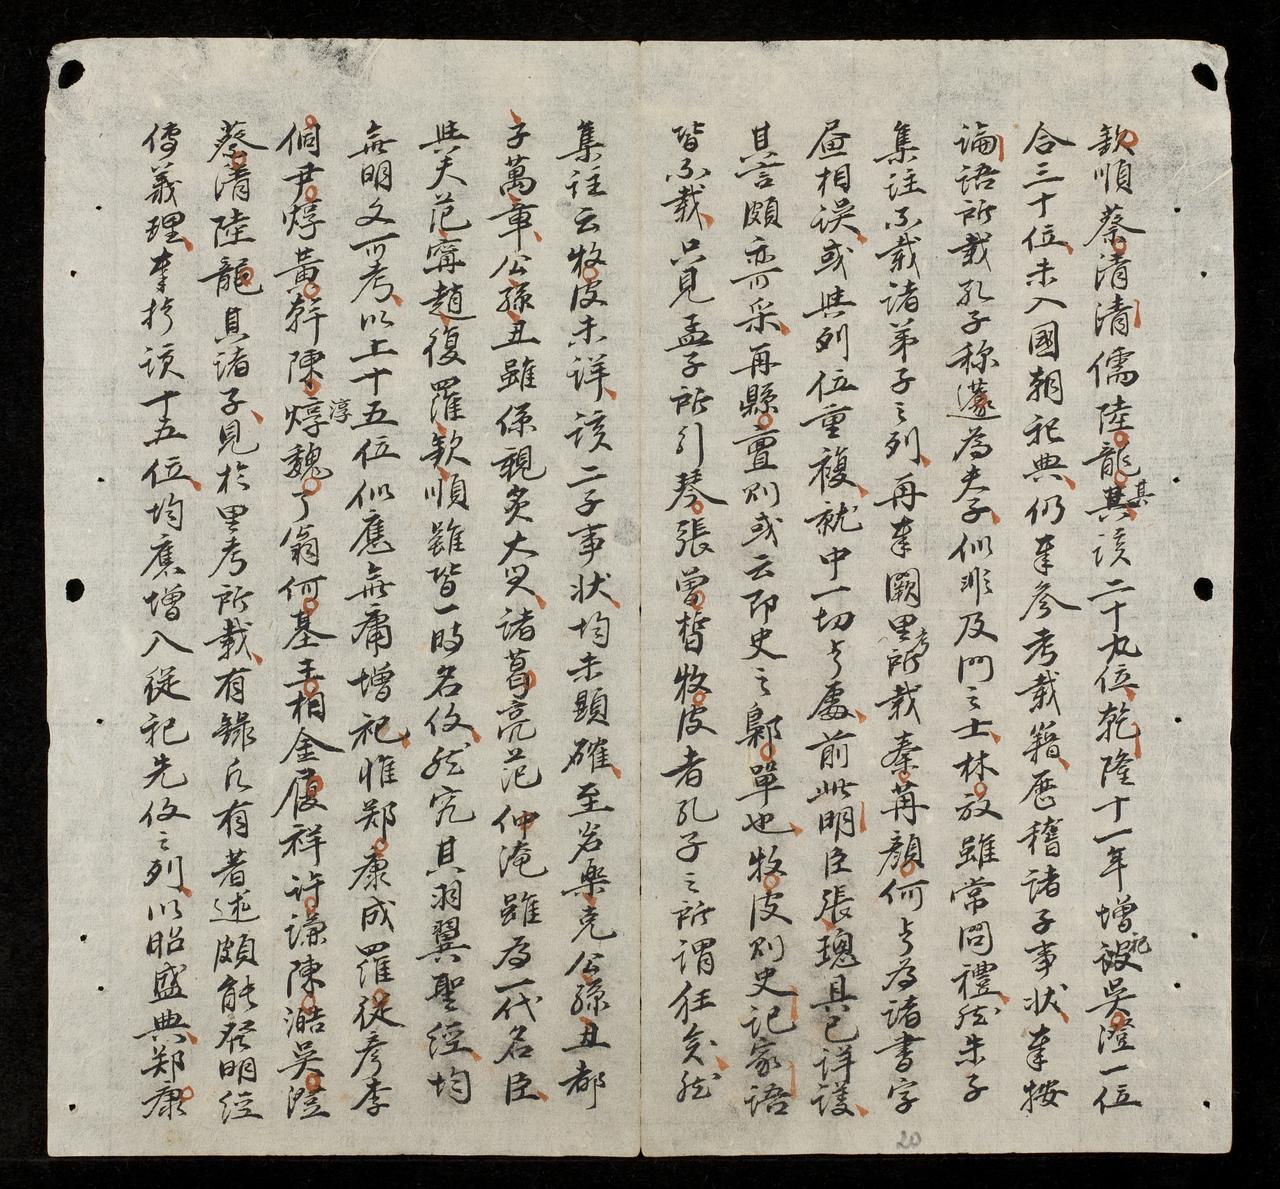 欽順蔡清清儒陸龍其該二十九位乾隆十一年增祀吳澄一位
合三十位未入國朝祀典仍奉參考載籍歷稽諸子事狀奉按
論語所載孔子称蘧為夫子似非及門之士林放雖常問禮然朱子
集註不載諸弟子之列再奉闕里考所載秦冉顏何与為諸書字
画相誤或與列位重複就中一切与處前此明臣張璁具已詳議
其言頗亦可采再縣亶則或云即史之鄡單也牧皮則史記家語
皆不載只見孟子所引琴張曾皙牧皮者孔子之所謂狂矣然
集註云牧皮未詳該二子事状均未顯確至若樂克公孫丑都
子萬章公孫丑雖係親炙大賢諸葛亮范仲淹雖為一代名臣
與夫范甯趙復羅欽順雖皆一時名儒然究其羽翼聖經均
無明文可考以上十五位似應無庸增祀惟郑康成羅從彥李
侗尹焞黃幹陳焞淳魏了翁何基王栢金履祥许谦陳澔吳澄
蔡清陸龍其諸子見於里考所載有錄只有著述頗能發明经
傳義理奉扵该十五位均應增入從祀先儒之列以昭盛典郑康
20